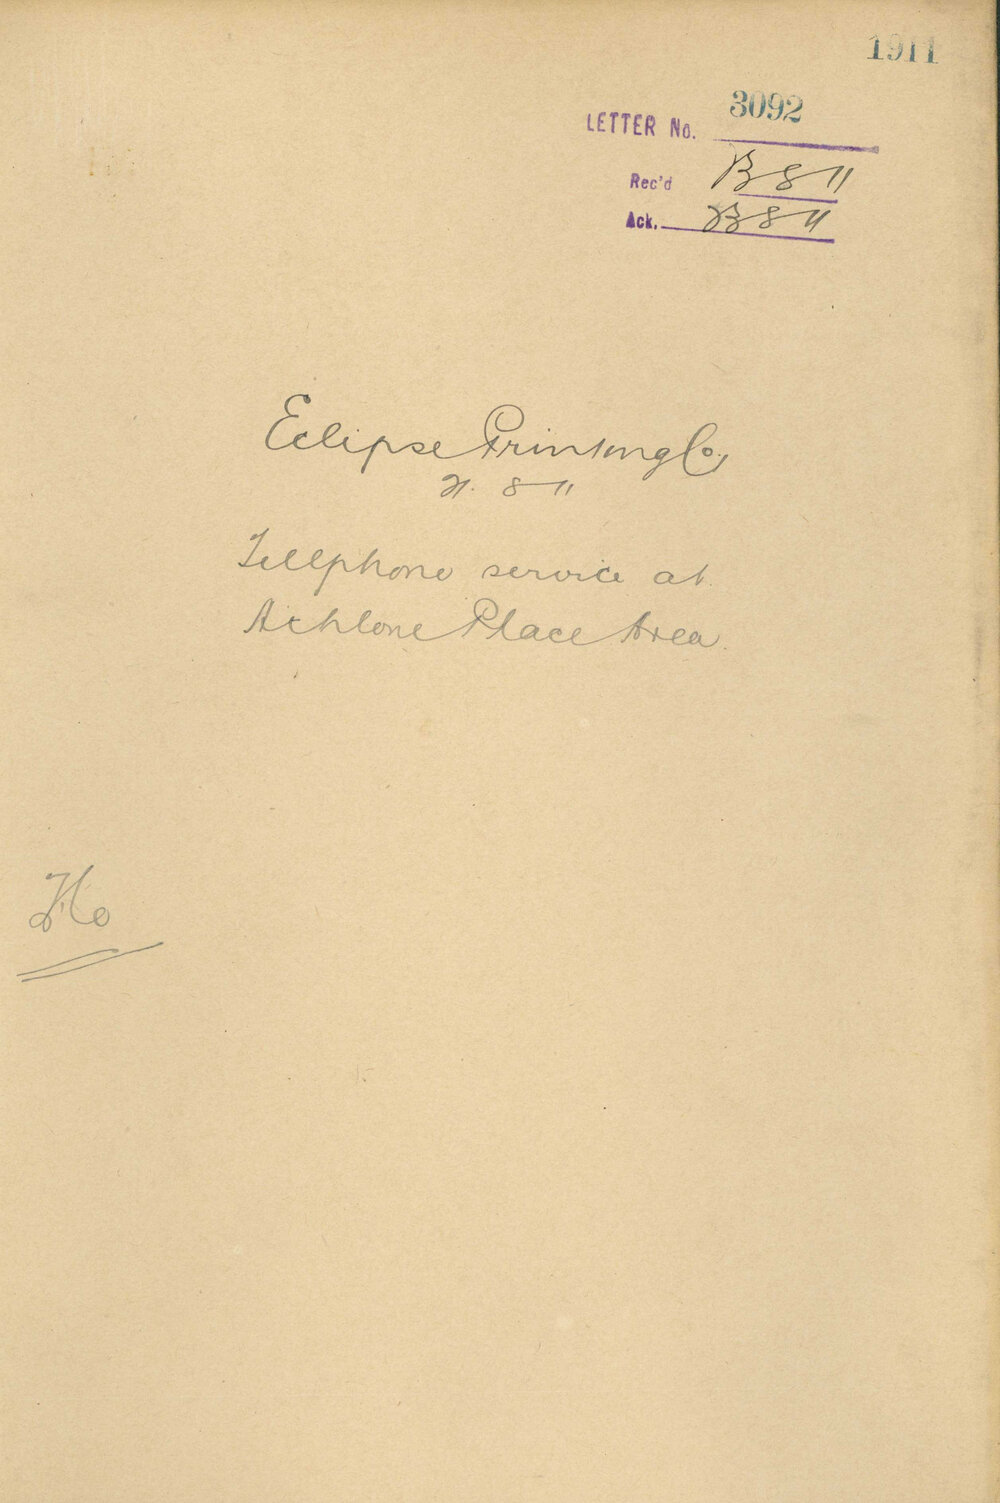 1911
LETTER No. 3092
Rec'd 8 11
Ack. 8 11
Eclipse Printing Co.,
21. 8 11
Tellphone service at
Athlone Place Area.